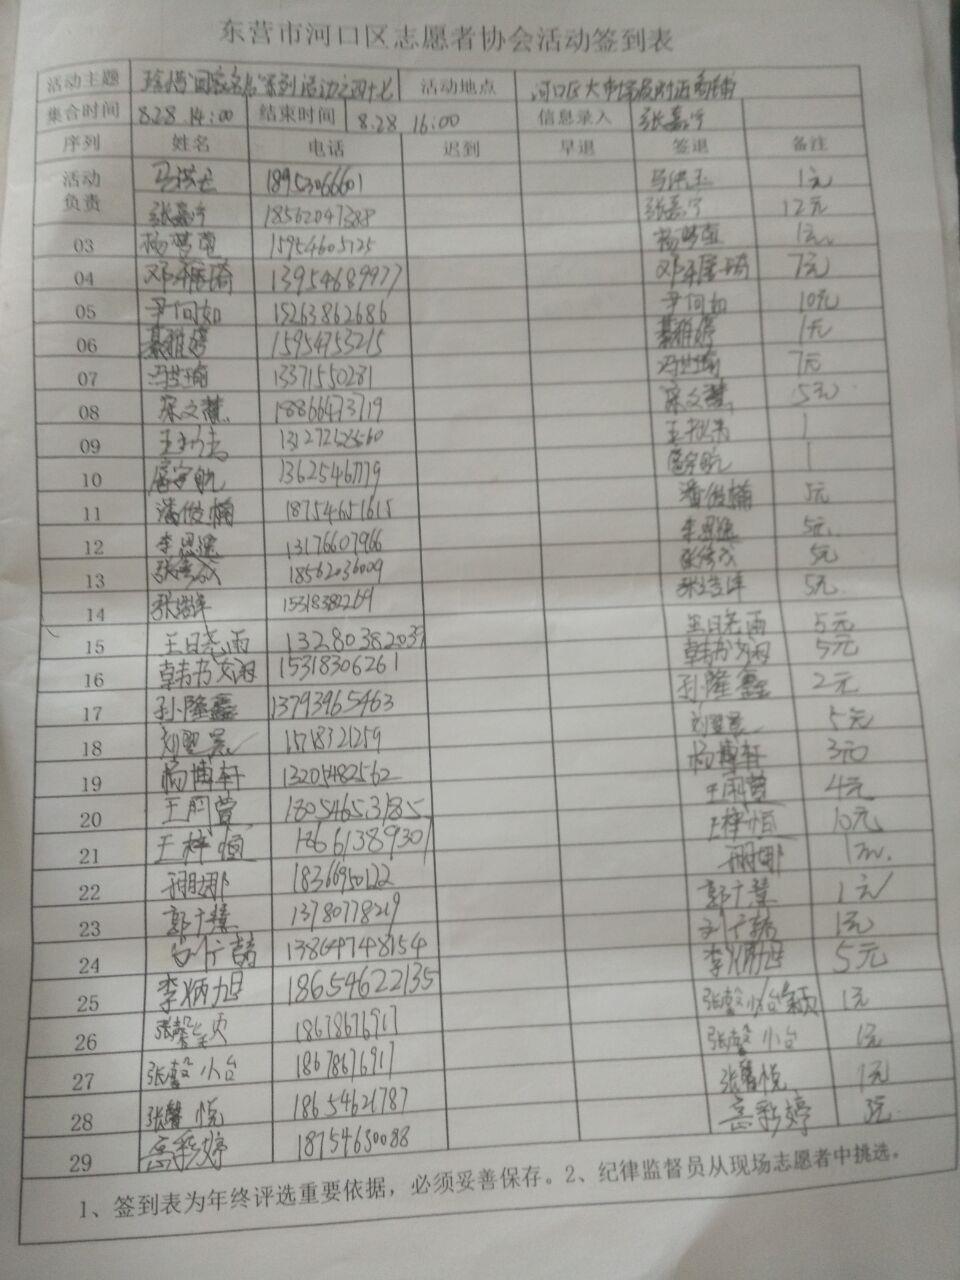 东营市河口区志愿者协会活动签到表
活动主题 活动地点 河口区大
集合时间 8.28 14:00 结束时间 8.28 16:00 信息录入 张嘉宁
序列 姓名 电话 迟到 早退 签退 备注
活动负责 18953066601 1元
张嘉宁 18562047388 张嘉宁 12元
03 杨梦莹 15954605125 杨梦莹 1元
04 13954689977 7元
05 尹何如 15263862686 尹何如 10元
06 綦雅婷 15954753215 綦雅婷 1元
07 冯世瑜 13371550281 冯世瑜 7元
08 宋文慧 18866473719 宋文慧 5元
09 1
10 扈宇航 扈宇航 1
11 潘俊楠 18754651615 潘俊楠 5元
12 李思 13176607966 李思 5元
13 18562036009 5元
14 15318382269 5元
15 王日尧雨 王日尧雨 5元
16 韩书 15318306261 韩书 5元
17 孙隆鑫 13793965463 孙隆鑫 2元
18 刘 刘 5元
19 杨博轩 13205482562 杨博轩 3元
20 18054653185 4元
21 王梓恒 18661389301 王梓恒 10元
22 18366950122 1元
23 郭于慧 13780778219 郭于慧 1元
24 13864748154 1元
25 李炳旭 18654622135 李炳旭 5元
26 18678676917 1元
27 张馨小台 18678676917 张馨小台 1元
28 张馨悦 18654621787 张馨悦 1元
29 高彩婷 18754630088 高彩婷 3元
1、签到表为年终评选重要依据，必须妥善保存。2、纪律监督员从现场志愿者中挑选。